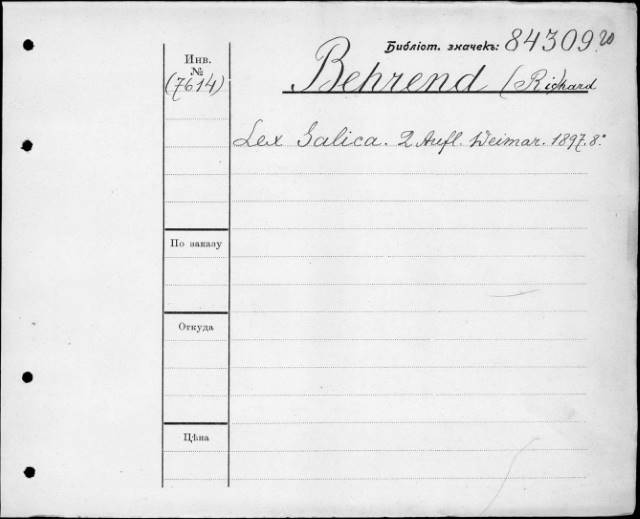 Библіот. значекъ: 84309.20
Инв.
№
(7614)
Behrend (Richard
Lex Salica. 2 Aufl. Weimar. 1897. 8°.
По заказу
Откуда
Цѣна